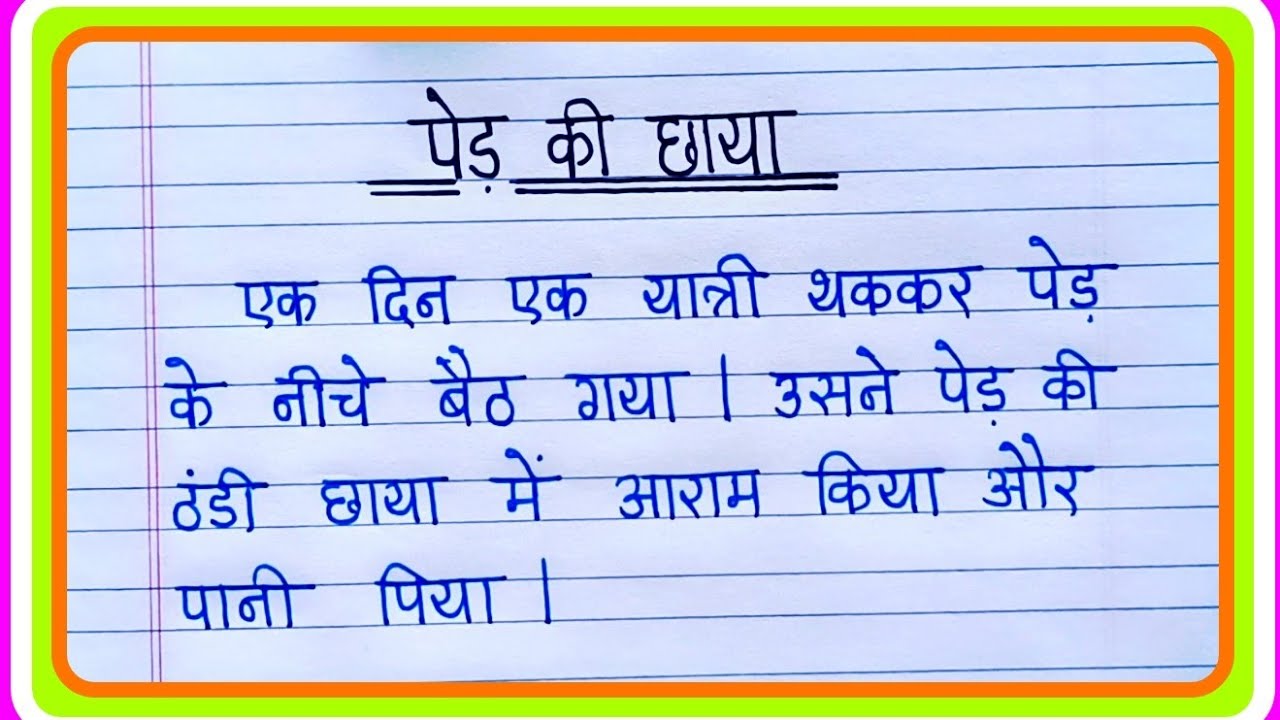 पेड़ की छाया
एक दिन एक यात्री थककर पेड़
के नीचे बैठ गया । उसने पेड़ की
ठंडी छाया में आराम किया और
पानी पिया ।